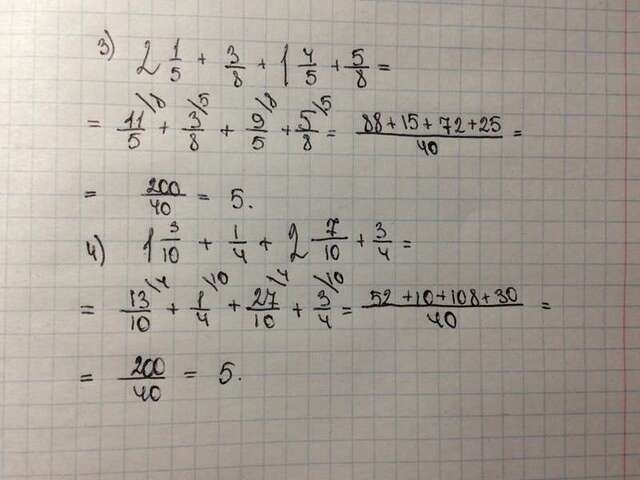 3) 2 1/5 + 3/8 + 1 4/5 + 5/8 =
= 11/5 /8 + 3/8 /5 + 9/5 /8 + 5/8 /5 = (88+15+72+25)/40 =
= 200/40 = 5.
4) 1 3/10 + 1/4 + 2 7/10 + 3/4 =
= 13/10 /4 + 1/4 /10 + 27/10 /4 + 3/4 /10 = (52+10+108+30)/40 =
= 200/40 = 5.